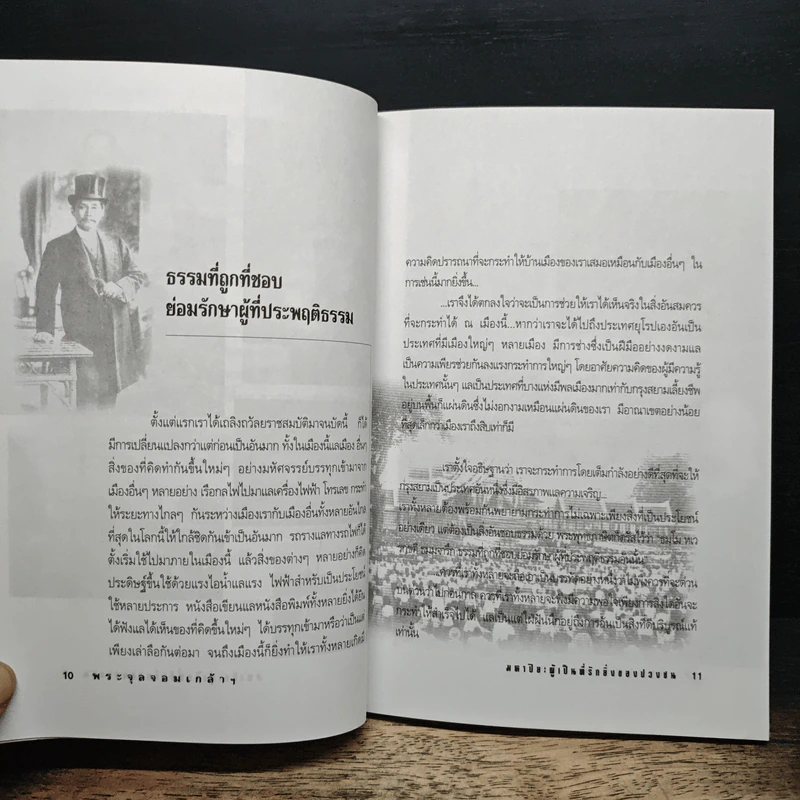 ธรรมที่ถูกที่ชอบ
ย่อมรักษาผู้ที่ประพฤติธรรม
ตั้งแต่แรกเราได้เถลิงถวัลยราชสมบัติมาจนบัดนี้ ก็ได้
มีการเปลี่ยนแปลงกว่าแต่ก่อนเป็นอันมาก ทั้งในเมืองนี้แลเมืองอื่นๆ
สิ่งของที่คิดทำกันขึ้นใหม่ๆ อย่างมหัศจรรย์บรรทุกเข้ามาจาก
เมืองอื่นๆ หลายอย่าง เรือกลไฟไปมาแลเครื่องไฟฟ้า โทรเลข กระทำ
ให้ระยะทางไกลๆ กันระหว่างเมืองเรากับเมืองอื่นทั้งหลายอันไกล
ที่สุดในโลกนี้ให้ใกล้ชิดกันเข้าเป็นอันมาก รถรางแลทางรถไฟก็ได้
ตั้งเริ่มใช้ไปมาภายในเมืองนี้ แล้วสิ่งของต่างๆ หลายอย่างก็คิด
ประดิษฐ์ขึ้นใช้ด้วยแรงไอน้ำแลแรง ไฟฟ้าสำหรับเป็นประโยชน์
ใช้หลายประการ หนังสือเขียนแลหนังสือพิมพ์ทั้งหลายยิ่งได้ยิน
ได้ฟังแลได้เห็นของที่คิดขึ้นใหม่ๆ ได้บรรทุกเข้ามาหรือว่าเป็นแต่
เพียงเล่าลือกันต่อมา จนถึงเมืองนี้ก็ยิ่งทำให้เราทั้งหลายเกิดมี
10 พระจุลจอมเกล้าฯ
ความคิดปรารถนาที่จะกระทำให้บ้านเมืองของเราเสมอเหมือนกับเมืองอื่นๆ ใน
การเช่นนี้มากยิ่งขึ้น...
...เราจึงได้ตกลงใจว่าจะเป็นการช่วยให้เราได้เห็นจริงในสิ่งอันสมควร
ที่จะกระทำได้ ณ เมืองนี้...หากว่าเราจะได้ไปถึงประเทศยุโรปเองอันเป็น
ประเทศที่มีเมืองใหญ่ๆ หลายเมือง มีการช่างซึ่งเป็นฝีมืออย่างงดงามแล
เป็นความเพียรช่วยกันลงแรงกระทำการใหญ่ๆ โดยอาศัยความคิดของผู้มีความรู้
ในประเทศนั้นๆ แลเป็นประเทศที่บางแห่งมีพลเมืองมากเท่ากับกรุงสยามเลี้ยงชีพ
อยู่บนพื้นที่แผ่นดินซึ่งไม่งอกงามเหมือนแผ่นดินของเรา มีอาณาเขตอย่างน้อย
ที่สุดเล็กกว่าเมืองเราถึงสิบเท่าก็มี
เราตั้งใจอธิษฐานว่า เราจะกระทำการโดยเต็มกำลังอย่างดีที่สุดที่จะให้
กรุงสยามเป็นประเทศอันหนึ่งซึ่งมีอิสรภาพแลความเจริญ...
เราทั้งหลายต้องพร้อมกันพยายามกระทำการไม่เฉพาะเพียงสิ่งที่เป็นประโยชน์
อย่างเดียว แต่ต้องเป็นสิ่งอันชอบธรรมด้วย พระพุทธภาษิตก็ตรัสไว้ว่า "ธมฺโม หเว
รกฺขติ ธมฺมจารึ ธรรมที่ถูกที่ชอบย่อมรักษา ผู้ที่ประพฤติธรรมอันนั้น"
กระทำให้สำเร็จไปได้ แลเป็นแต่ใฝ่ฝันนึกอยู่ถึงการอันเป็นสิ่งที่ดีบริบูรณ์แท้
เท่านั้น
มหาปิยะผู้เป็นที่รักยิ่งของปวงชน 11